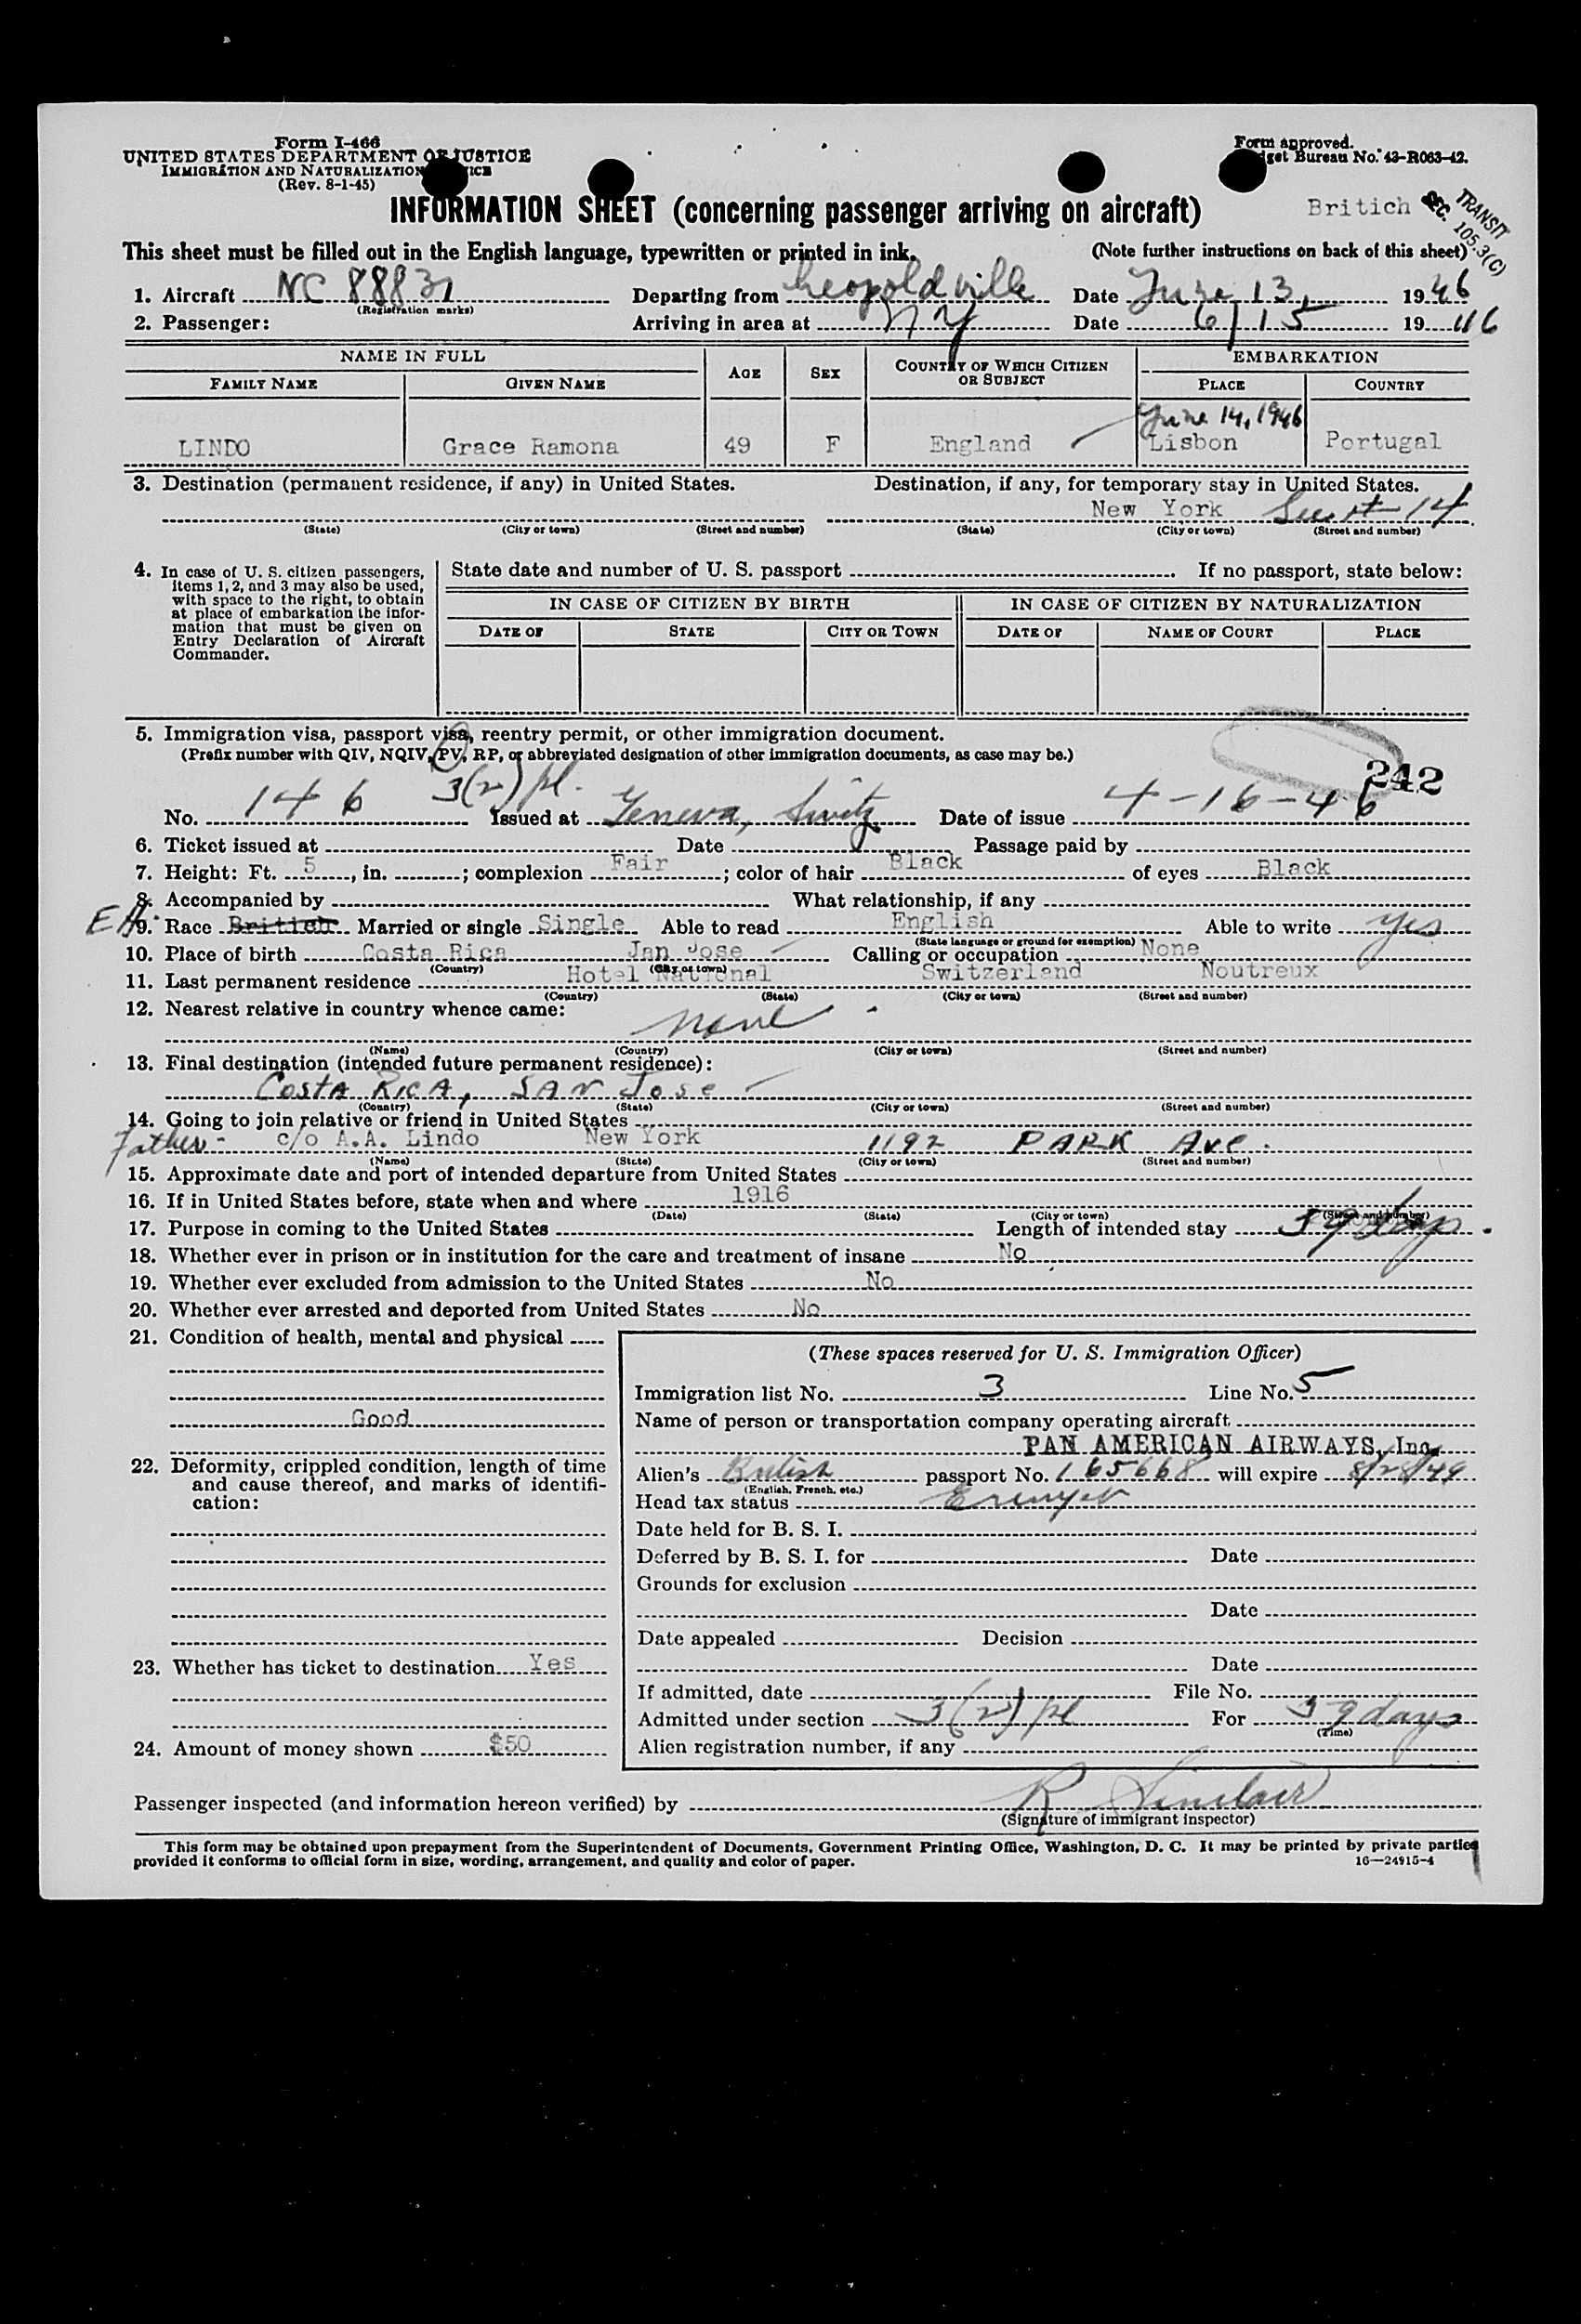 Form I-466
UNITED STATES DEPARTMENT OF JUSTICE
IMMIGRATION AND NATURALIZATION
(Rev. 8-1-45)
Form approved.
Bureau No. 43-R063-42.
INFORMATION SHEET (concerning passenger arriving on aircraft)
Britich
SEC. 105.3(C)
TRANSIT
This sheet must be filled out in the English language, typewritten or printed in ink. (Note further instructions on back of this sheet)
1. Aircraft NC 88831 Departing from Leopoldville Date June 13, 1946
(Registration marks)
2. Passenger: Arriving in area at NY Date 6/15 1946
NAME IN FULL AGE SEX COUNTRY OF WHICH CITIZEN OR SUBJECT EMBARKATION
FAMILY NAME GIVEN NAME PLACE COUNTRY
June 14, 1946
LINDO Grace Ramona 49 F England Lisbon Portugal
3. Destination (permanent residence, if any) in United States. Destination, if any, for temporary stay in United States.
New York 14
(State) (City or town) (Street and number) (State) (City or town) (Street and number)
4. In case of U. S. citizen passengers, items 1, 2, and 3 may also be used, with space to the right, to obtain at place of embarkation the information that must be given on Entry Declaration of Aircraft Commander.
State date and number of U. S. passport If no passport, state below:
IN CASE OF CITIZEN BY BIRTH IN CASE OF CITIZEN BY NATURALIZATION
DATE OF STATE CITY OR TOWN DATE OF NAME OF COURT PLACE
5. Immigration visa, passport visa, reentry permit, or other immigration document.
(Prefix number with QIV, NQIV, PV, RP, or abbreviated designation of other immigration documents, as case may be.)
242
3(2) pl.
No. 146 Issued at Geneva, Switz Date of issue 4-16-46
6. Ticket issued at Date Passage paid by
7. Height: Ft. 5, in. ; complexion Fair ; color of hair Black of eyes Black
8. Accompanied by What relationship, if any
9. Race Britich Married or single Single Able to read English Able to write yes
(State language or ground for exemption)
10. Place of birth Costa Rica Jan Jose Calling or occupation None
(Country) (City or town)
11. Last permanent residence Hotel National Switzerland Noutreux
(Country) (State) (City or town) (Street and number)
12. Nearest relative in country whence came:
None
(Name) (Country) (City or town) (Street and number)
13. Final destination (intended future permanent residence):
COSTA RICA, SAN Jose
(Country) (State) (City or town) (Street and number)
14. Going to join relative or friend in United States
Father - c/o A.A. Lindo New York 1192 PARK Ave.
(Name) (State) (City or town) (Street and number)
15. Approximate date and port of intended departure from United States
16. If in United States before, state when and where 1916
(Date) (State) (City or town) (Street and number)
17. Purpose in coming to the United States Length of intended stay 59 days.
18. Whether ever in prison or in institution for the care and treatment of insane No
19. Whether ever excluded from admission to the United States No
20. Whether ever arrested and deported from United States No
21. Condition of health, mental and physical
Good
22. Deformity, crippled condition, length of time and cause thereof, and marks of identification:
23. Whether has ticket to destination Yes
24. Amount of money shown $50
(These spaces reserved for U. S. Immigration Officer)
Immigration list No. 3 Line No. 5
Name of person or transportation company operating aircraft
PAN AMERICAN AIRWAYS, Inc.
Alien's British passport No. 165668 will expire 8/28/49
(English, French, etc.)
Head tax status
Date held for B. S. I.
Deferred by B. S. I. for Date
Grounds for exclusion
Date
Date appealed Decision
Date
If admitted, date File No.
Admitted under section 3(2) pl For 59 days
(Time)
Alien registration number, if any
Passenger inspected (and information hereon verified) by R Sinclair
(Signature of immigrant inspector)
This form may be obtained upon prepayment from the Superintendent of Documents, Government Printing Office, Washington, D. C. It may be printed by private parties
provided it conforms to official form in size, wording, arrangement, and quality and color of paper. 16—24915-4